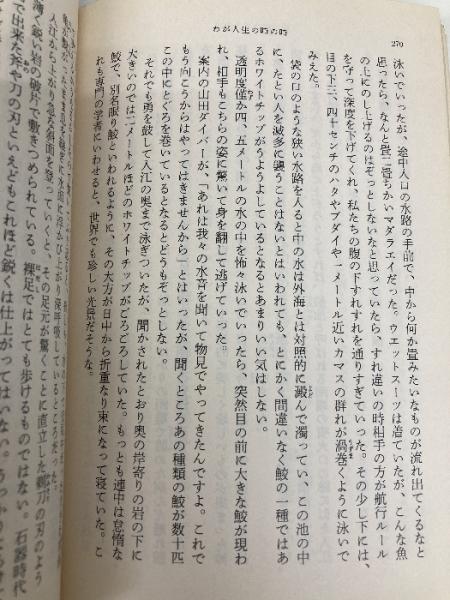 わが人生の時の時
270
泳いでいったが、途中入口の水路の手前で、中から何か畳みたいなものが流れ出てくるなと
思ったら、なんと畳二畳ちかいマダラエイだった。ウエットスーツは着ていたが、こんな魚
の上にのし上げるのはぞっとしないなと思っていたら、すれ違いの時相手の方が航行ルール
を守って深度を下げてくれ、私たちの腹の下すれすれを通りすぎていった。その少し下には、
目の下三、四十センチのハタやブダイや一メートル近いカマスの群れが渦巻くように泳いで
みえた。
袋の口のような狭い水路を入ると中の水は外海とは対照的に澱んで濁っていい、この池の中
に、たとい人を滅多に襲うことはないとはいわれても、とにかく間違いなく鮫の一種ではあ
るホワイトチップがうようよしているとなるとあまりいい気はしない。
透明度僅か四、五メートルの水の中を怖々泳いでいったら、突然目の前に大きな鮫が現わ
れ、相手もこちらの姿に驚いて身を翻して逃げていった。
案内の山田ダイバーが、「あれは我々の水音を聞いて物見でやってきたんですよ。これで
もう向こうからはやってはきませんから」とはいったが、聞くところあの種類の鮫が数十匹
この中にとぐろを巻いているとなるとどうもぞっとしない。
それでも勇を鼓して入江の奥まで泳いだが、聞かされたとおり奥の岸寄りの岩の下に
大きいのでは二メートルほどのホワイトチップがごろごろしていた。もっとも連中は怠惰な
鮫で、別名眠り鮫といわれるように、その大方が日中から折重なり束になって寝ていた。こ
れも専門の学者にいわせると、世界でも珍しい光景だそうな。
入江から上がり急な斜面を登っていくと、その足元が驚くことに直立した剃刀の刃のよう
薄く鋭い岩の破片で敷きつめられている。裸足ではとても歩けるものではない。石器時代
で出来た斧や刀の刃といえどもこれほど鋭くは仕上がってはいない。